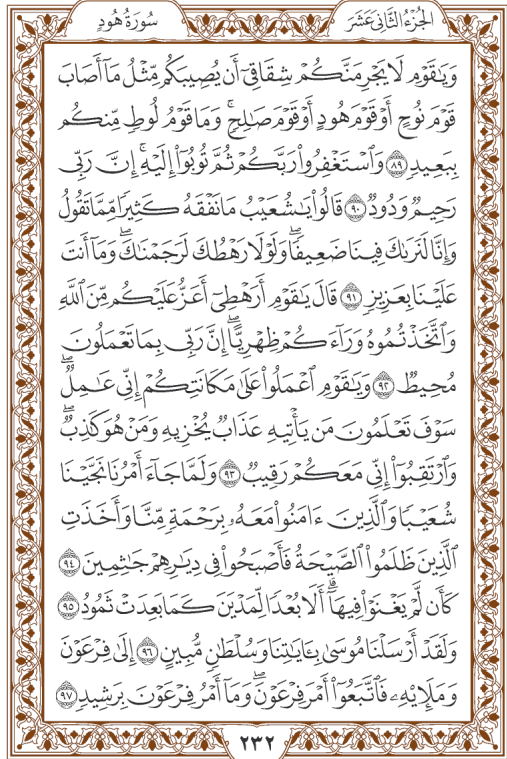 الجُزْءُ الثَّانِى عَشَرَ
سُورَةُ هُودٍ
وَيَٰقَوْمِ لَا يَجْرِمَنَّكُمْ شِقَاقِىٓ أَن يُصِيبَكُم مِّثْلُ مَآ أَصَابَ
قَوْمَ نُوحٍ أَوْ قَوْمَ هُودٍ أَوْ قَوْمَ صَٰلِحٍۚ وَمَا قَوْمُ لُوطٍ مِّنكُم
بِبَعِيدٍ ٨٩ وَٱسْتَغْفِرُوا۟ رَبَّكُمْ ثُمَّ تُوبُوٓا۟ إِلَيْهِۚ إِنَّ رَبِّى
رَحِيمٌ وَدُودٌ ٩٠ قَالُوا۟ يَٰشُعَيْبُ مَا نَفْقَهُ كَثِيرًا مِّمَّا تَقُولُ
وَإِنَّا لَنَرَىٰكَ فِينَا ضَعِيفًاۖ وَلَوْلَا رَهْطُكَ لَرَجَمْنَٰكَۖ وَمَآ أَنتَ
عَلَيْنَا بِعَزِيزٍ ٩١ قَالَ يَٰقَوْمِ أَرَهْطِىٓ أَعَزُّ عَلَيْكُم مِّنَ ٱللَّهِ
وَٱتَّخَذْتُمُوهُ وَرَآءَكُمْ ظِهْرِيًّاۖ إِنَّ رَبِّى بِمَا تَعْمَلُونَ
مُحِيطٌ ٩٢ وَيَٰقَوْمِ ٱعْمَلُوا۟ عَلَىٰ مَكَانَتِكُمْ إِنِّى عَٰمِلٌۖ
سَوْفَ تَعْلَمُونَ مَن يَأْتِيهِ عَذَابٌ يُخْزِيهِ وَمَنْ هُوَ كَٰذِبٌۖ
وَٱرْتَقِبُوٓا۟ إِنِّى مَعَكُمْ رَقِيبٌ ٩٣ وَلَمَّا جَآءَ أَمْرُنَا نَجَّيْنَا
شُعَيْبًا وَٱلَّذِينَ ءَامَنُوا۟ مَعَهُۥ بِرَحْمَةٍ مِّنَّا وَأَخَذَتِ
ٱلَّذِينَ ظَلَمُوا۟ ٱلصَّيْحَةُ فَأَصْبَحُوا۟ فِى دِيَٰرِهِمْ جَٰثِمِينَ ٩٤
كَأَن لَّمْ يَغْنَوْا۟ فِيهَآۗ أَلَا بُعْدًا لِّمَدْيَنَ كَمَا بَعِدَتْ ثَمُودُ ٩٥
وَلَقَدْ أَرْسَلْنَا مُوسَىٰ بِـَٔايَٰتِنَا وَسُلْطَٰنٍ مُّبِينٍ ٩٦ إِلَىٰ فِرْعَوْنَ
وَمَلَإِي۟هِۦ فَٱتَّبَعُوٓا۟ أَمْرَ فِرْعَوْنَۖ وَمَآ أَمْرُ فِرْعَوْنَ بِرَشِيدٍ ٩٧
٢٣٢